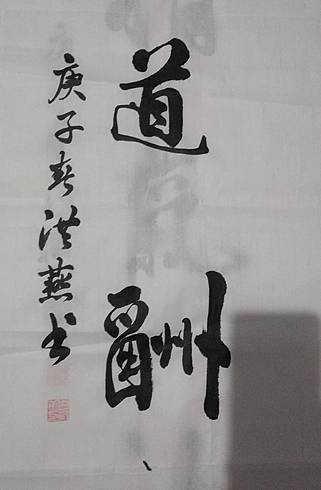 道酬
庚子春洪燕书